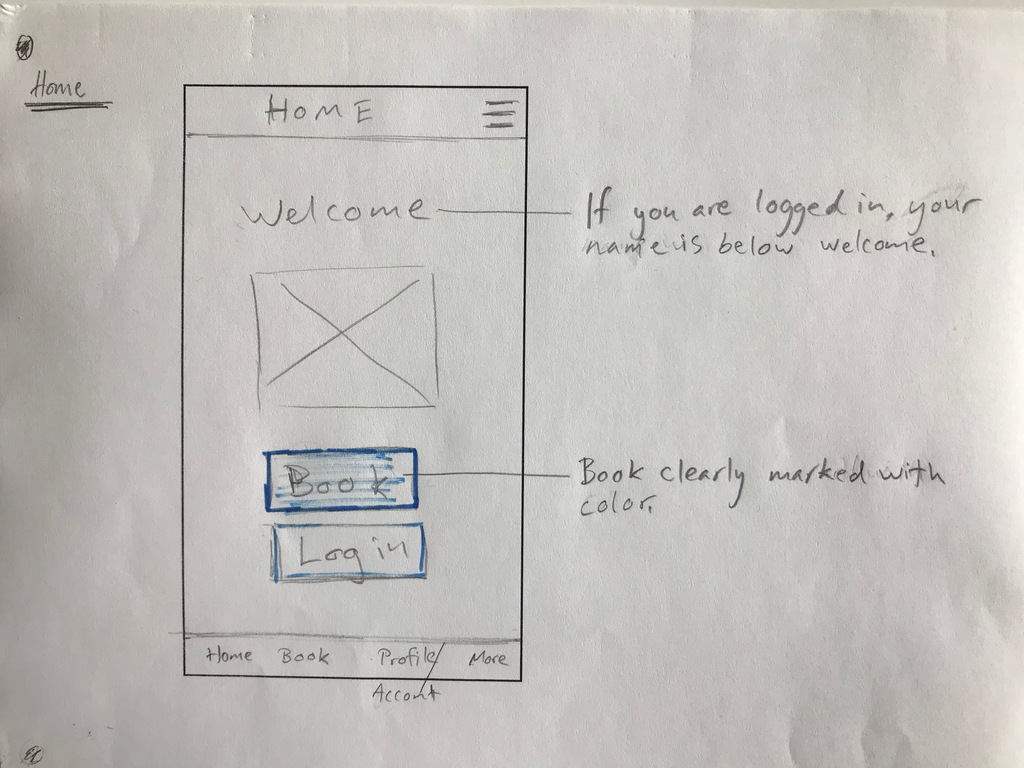 Home
HOME
Welcome
If you are logged in, your
name is below welcome.
Book
Book clearly marked with
color.
Log in
Home Book Profile/ More
Accont